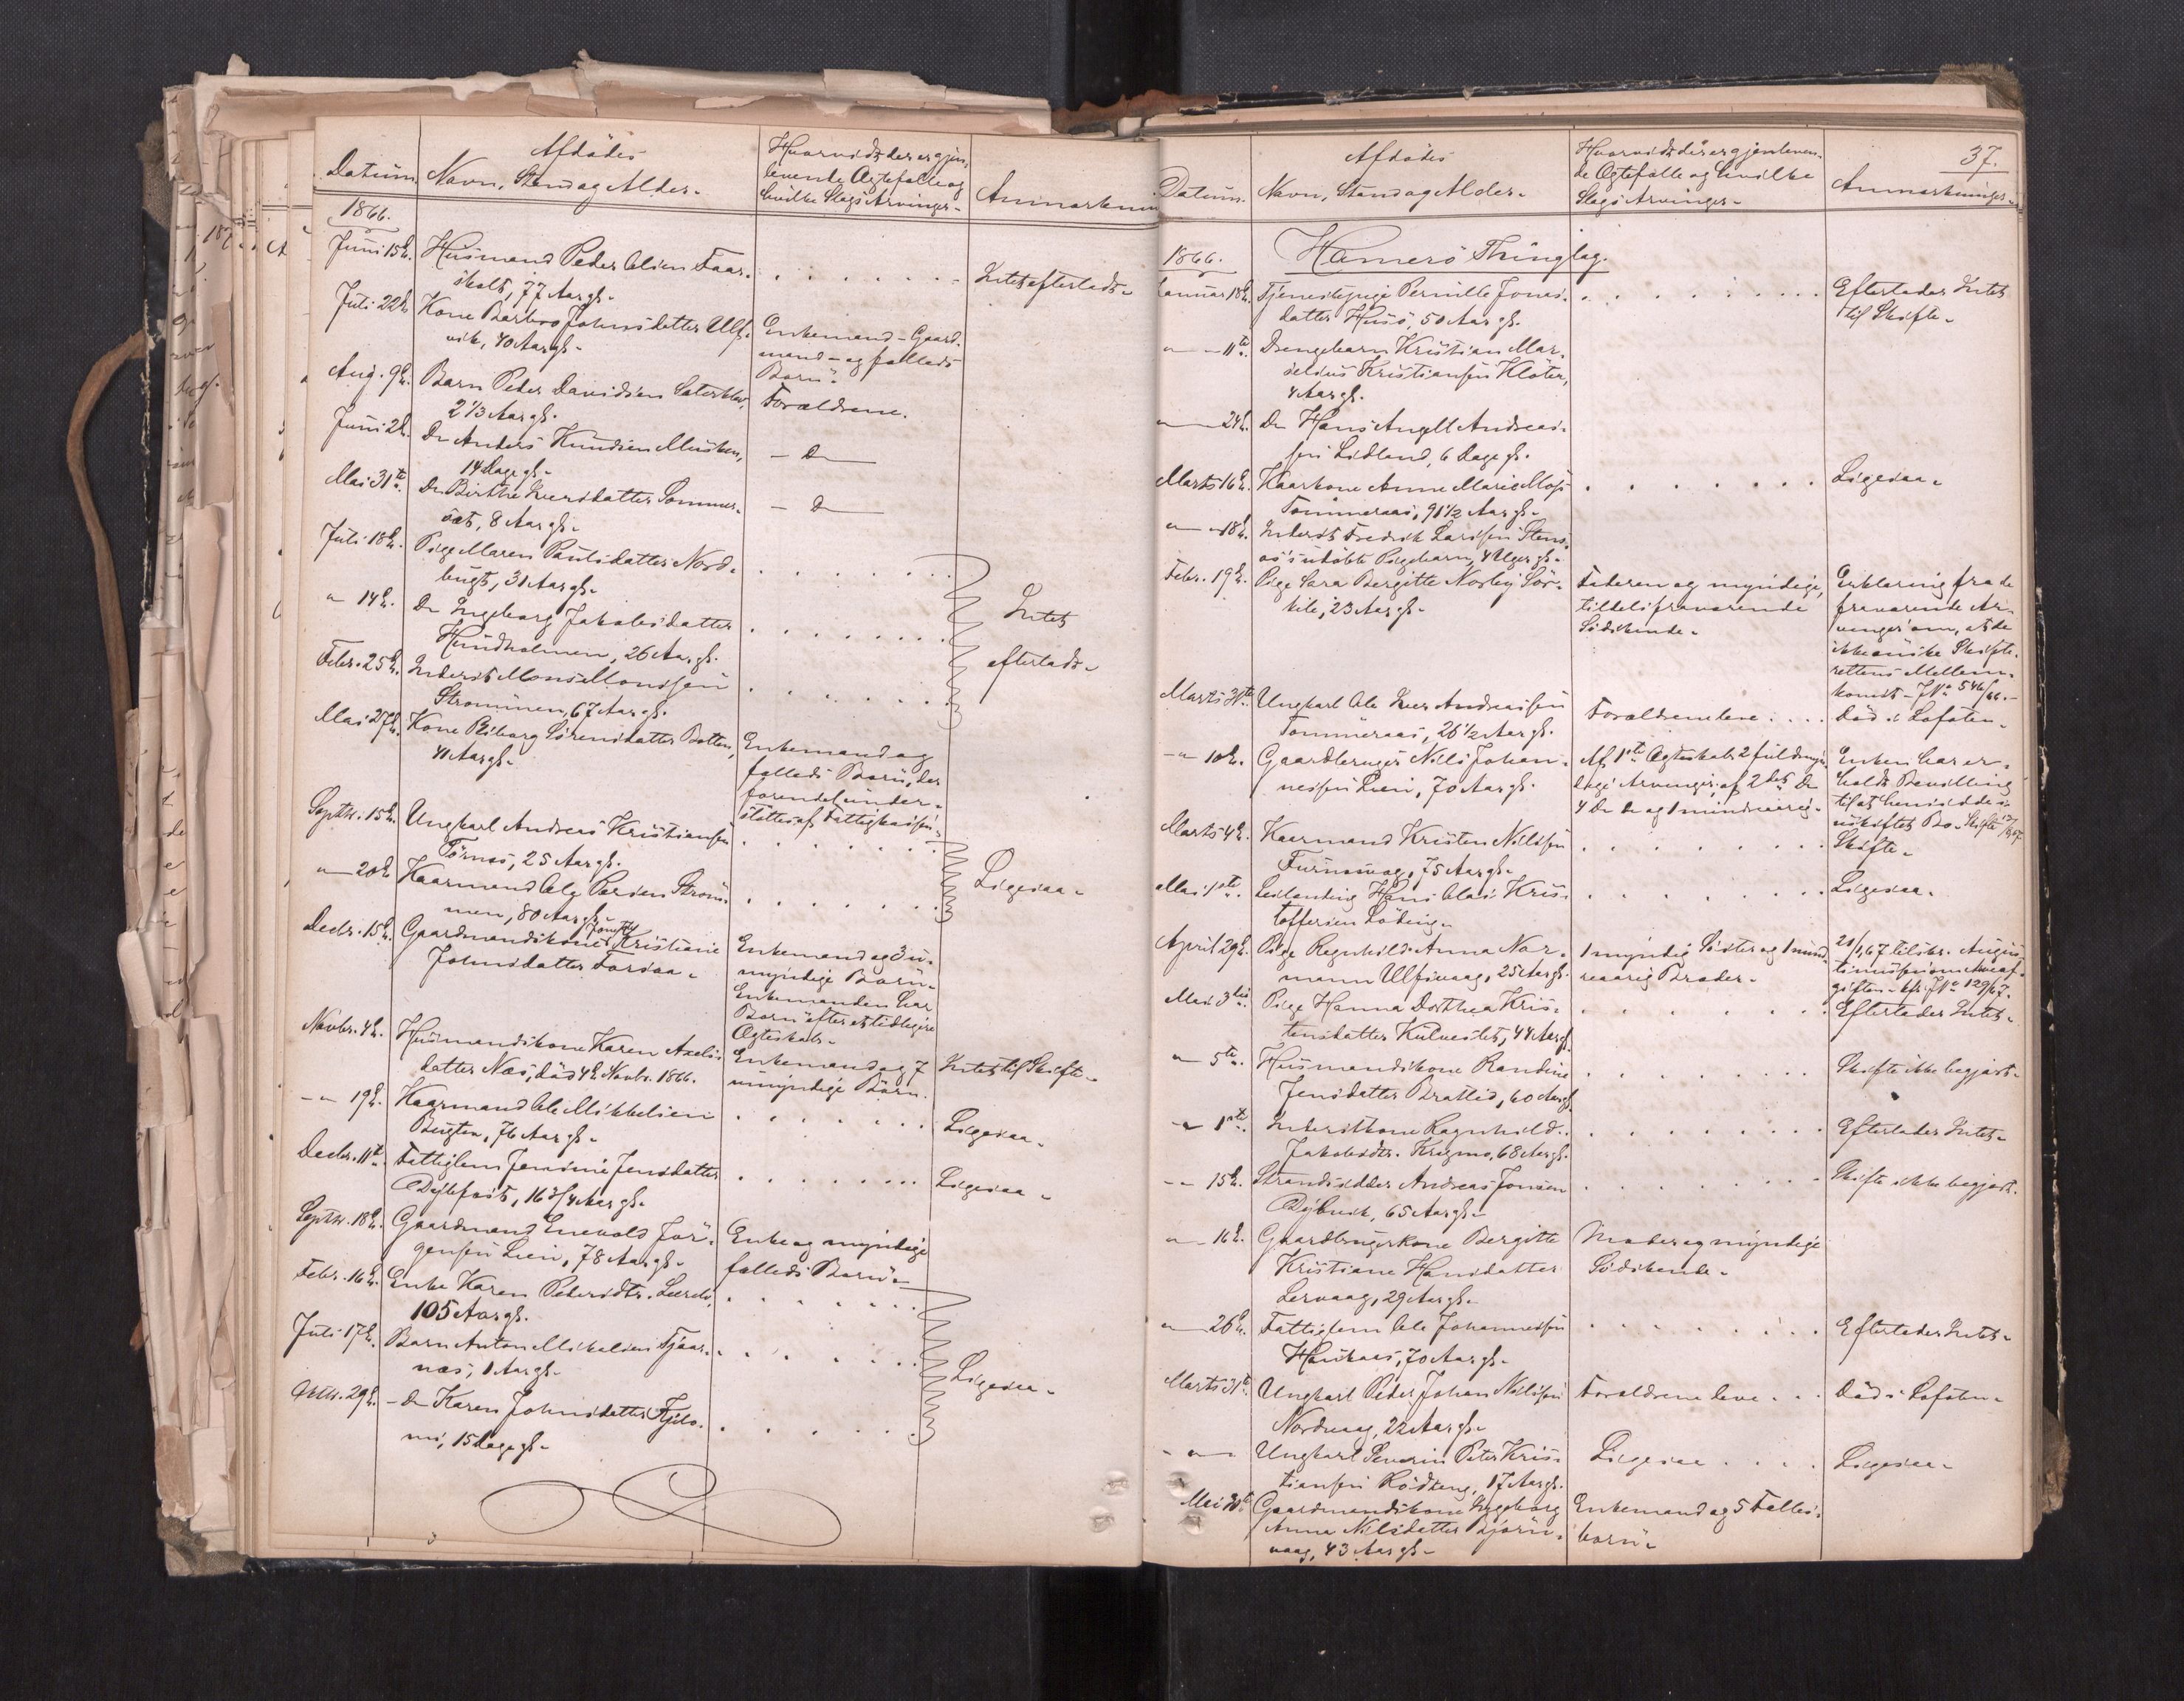 Datum.
Afdødes
Navn, Stand og Alder.
Hvorvidt der er gjen-
levende Ægtefælle og
hvilke Slags Arvinger.
Anmærkn
1866.
Juni 15de.
Husmand Peder Olsen Taar-
skalt, 77 Aar gl.
Intet efterladt.
Juli 22de
Kone Barbro Johnsdatter Ulfs-
vik, 40 Aar gl.
Enkemand - Gaard-
mand - og fælleds
Børn.
Aug. 9de.
Barn Peder Davidsen
2 1/3 Aar gl.
Forældrene.
Juni 2de.
Do Anders Knudsen Musken,
14 Dage gl.
- Do
Mai 31te.
Do Birthe Iversdatter Sommer-
sæt, 8 Aar gl.
- Do
Juli 18de.
Pige Maren Paulsdatter Nord-
bugt, 31 Aar gl.
" 14de.
Do Ingeborg Jakobsdatter
Hundholmen, 26 Aar gl.
Intet
efterladt.
Febr. 25de.
Inderst Mons Monssen
Strømmen, 67 Aar gl.
Mai 27de.
Kone Riborg Sørensdatter Botten,
41 Aar gl.
Enkemand og
fælleds Børn, der
forendel under-
støttes af Fattigkassen.
Septbr. 15de.
Ungkarl Anders Kristiansen
Tørnes, 25 Aar gl.
" 20de
Kaarmand Ole Persen Strøm-
men, 80 Aar gl.
Ligesaa.
Decbr. 15de.
Gaardmandskone Kristiane
Johnsdatter Forsaa.
Enkemand og 3 u-
myndige Børn.
Enkemanden har
Børn efter et tidligere
Ægteskab.
Novbr. 4de.
Husmandskone Karen Axels-
datter Næs, død 4de Novbr. 1866.
Enkemand og 7
umyndige Børn.
Intet til Skifte.
" 19de.
Kaarmand Ole Mikkelsen
Bugten, 76 Aar gl.
Ligesaa.
Decbr. 11te.
Fattiglem Jensine Jensdatter
Dypfest, 16 3/4 Aar gl.
Ligesaa.
Septbr. 18de.
Gaardmand Enevold Jør-
gensen Lien, 78 Aar gl.
Enke og myndige
fælleds Børn.
Febr. 16de.
Enke Karen Pedersdtr.
105 Aar gl.
Juli 17de.
Barn Anton Mikalsen Tjaar-
næs, 1 Aar gl.
Ligesaa.
Oktbr. 29de.
- Do Karen Johnsdatter Kjelv-
nes, 15 Dage gl.
37.
Datum.
Afdødes
Navn, Stand og Alder.
Hvorvidt der er gjenleven-
de Ægtefælle og hvilke
Slags Arvinger.
Anmærkninger.
1866.
Hamerø Thinglag.
Januar 18de.
Tjenestepige Pernille Jonas-
datter Husø, 50 Aar gl.
Efterlader Intet
til Skifte.
" 11te.
Drengebarn Kristian Mar-
selius Kristiansen Kløter,
4 Aar gl.
" 24de.
Do Hans Angell Andreas-
sen Lidland, 6 Dage gl.
Marts 16de.
Kaarkone Anne Marie Mosi
Tømmeraas, 91 1/2 Aar gl.
Ligesaa.
" 18de.
Inderst Fredrik Larssen Stens-
øs's udøbte Pigebarn, 4 Uger gl.
Febr. 19de.
Pige Sara Bergitte Norby Sør-
kile, 23 Aar gl.
Faderen og myndige,
tildels fraværende
Södskende.
Erklæring fra de
fraværende Ar-
vinger om, at de
ikke ønske Skifte-
rettens Mellem-
komst - J No 546/66.
Marts 31te.
Ungkarl Ole Iver Andreassen
Tømmeraas, 26 1/2 Aar gl.
Forældrene leve.
Død i Lofoten.
" 10de.
Gaardbruger Nils Johan-
nessen Lien, 70 Aar gl.
Af 1ste Ægteskab 2 fuldmyn-
dige Arvinger, af 2det Do
4 Do Do og 1 mindreaarig.
Enken har er-
holdt Bevilling
til at hensidde i
uskiftet Bo.
Marts 4de.
Kaarmand Kristen Nilssen
Furnesvog, 75 Aar gl.
Skifte.
Mai 1ste.
Leilending Hans Olai Kris-
toffersen Løding.
Ligesaa.
April 29de.
Pige Regnhild Anna Nor-
mann Ulfsvaag, 25 Aar gl.
1 myndig Søster og 1 mind-
reaarig Broder.
Mai 3die
Pige Hanna Dorthea Kris-
tensdatter Kulvestet, 44 Aar gl.
Efterlader Intet.
" 5te.
Husmandskone Randine
Jensdatter Bratlid, 60 Aar gl.
Skifte ikke begjært.
" 1ste.
Inderstkone Ragnhild
Jakobsdtr. Kragmo, 68 Aar gl.
Efterlader Intet.
" 15de.
Strandsidder Andreas Jonsen
Dybvik, 65 Aar gl.
Skifte ikke begjært.
" 16de.
Gaardbrugerkone Bergitte
Kristiane Hansdatter
Lervaag, 29 Aar gl.
Moder og myndige
Södskende.
" 26de.
Fattiglem Ole Johannessen
Haukaas, 70 Aar gl.
Efterlader Intet.
Marts 31te.
Ungkarl Peder Johan Nilssen
Nordvaag, 22 Aar gl.
Forældrene leve.
Død i Lofoten.
Ungkarl Severin Peter Kris-
tiansen Rødtang, 17 Aar gl.
Ligesaa
Ligesaa.
Mai 30te
Gaardmandskone Ingeborg
Anna Nilsdatter Bjørn-
vaag, 43 Aar gl.
Enkemand og 5 Fælles-
børn.